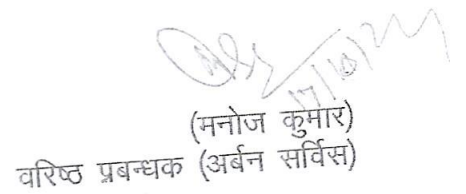 17/10/24
(मनोज कुमार)
वरिष्ठ प्रबन्धक (अर्बन सर्विस)